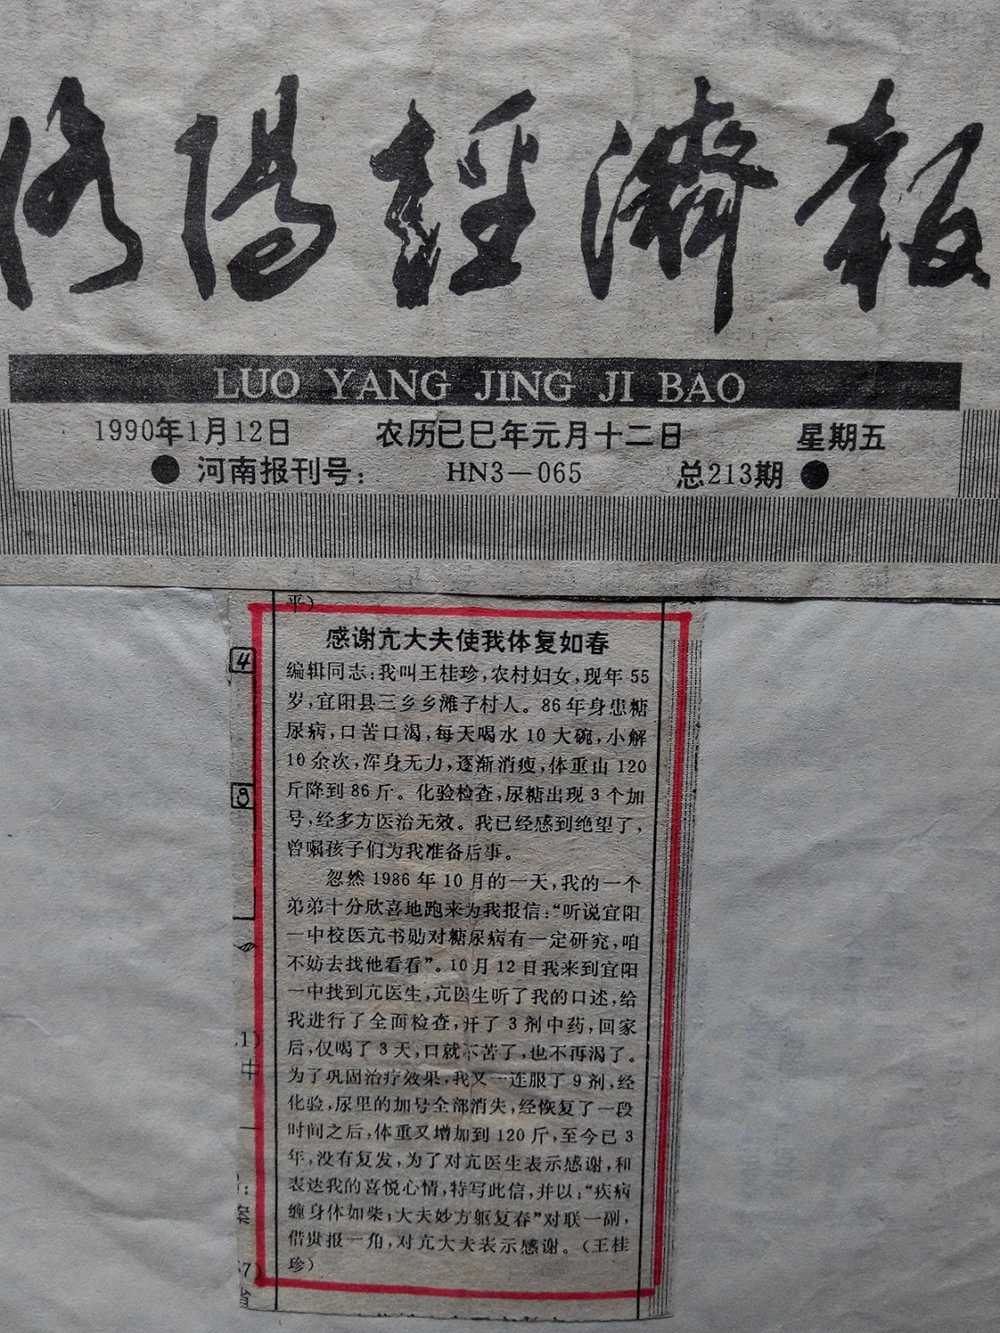 洛陽經濟報
LUO YANG JING JI BAO
1990年1月12日 农历己巳年元月十二日 星期五
●河南报刊号： HN3—065 总213期●
平）
感谢亢大夫使我体复如春
编辑同志：我叫王桂珍，农村妇女，现年55
岁，宜阳县三乡乡滩子村人。86年身患糖
尿病，口苦口渴，每天喝水10大碗，小解
10余次，浑身无力，逐渐消瘦，体重由120
斤降到86斤。化验检查，尿糖出现3个加
号，经多方医治无效。我已经感到绝望了，
曾嘱孩子们为我准备后事。
忽然1986年10月的一天，我的一个
弟弟十分欣喜地跑来为我报信：“听说宜阳
一中校医亢书勋对糖尿病有一定研究，咱
不妨去找他看看”。10月12日我来到宜阳
一中找到亢医生，亢医生听了我的口述，给
我进行了全面检查，开了3剂中药，回家
后，仅喝了3天，口就不苦了，也不再渴了。
为了巩固治疗效果，我又一连服了9剂，经
化验，尿里的加号全部消失，经恢复了一段
时间之后，体重又增加到120斤，至今已3
年，没有复发，为了对亢医生表示感谢，和
表达我的喜悦心情，特写此信，并以：“疾病
缠身体如柴；大夫妙方躯复春”对联一副，
借贵报一角，对亢大夫表示感谢。（王桂
珍）
4
8